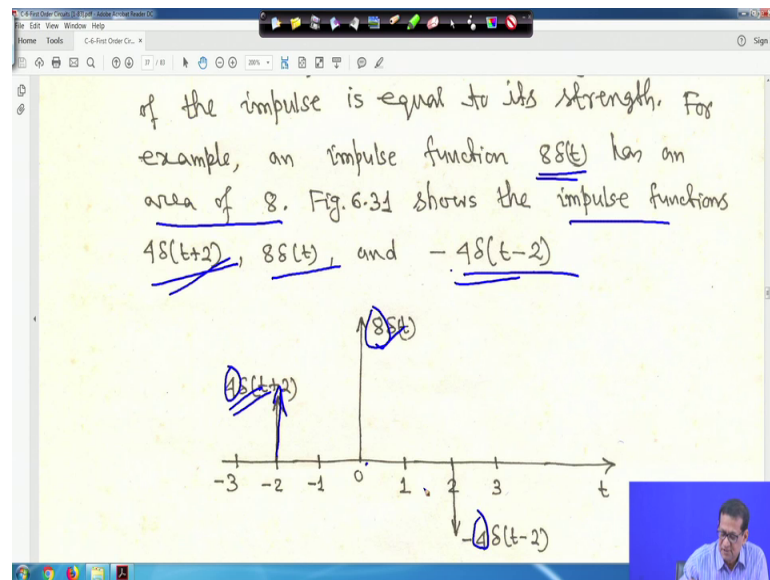 C-6-First Order Circuits [1-83].pdf - Adobe Acrobat Reader DC
File Edit View Window Help
Home Tools C-6-First Order Cir... × Sign
37 / 83 200%
of the impulse is equal to its strength. For
example, an impulse function 8δ(t) has an
area of 8. Fig. 6.31 shows the impulse functions
4δ(t+2), 8δ(t), and -4δ(t-2)
8δ(t)
4δ(t+2)
-3 -2 -1 0 1 2 3 t
-4δ(t-2)